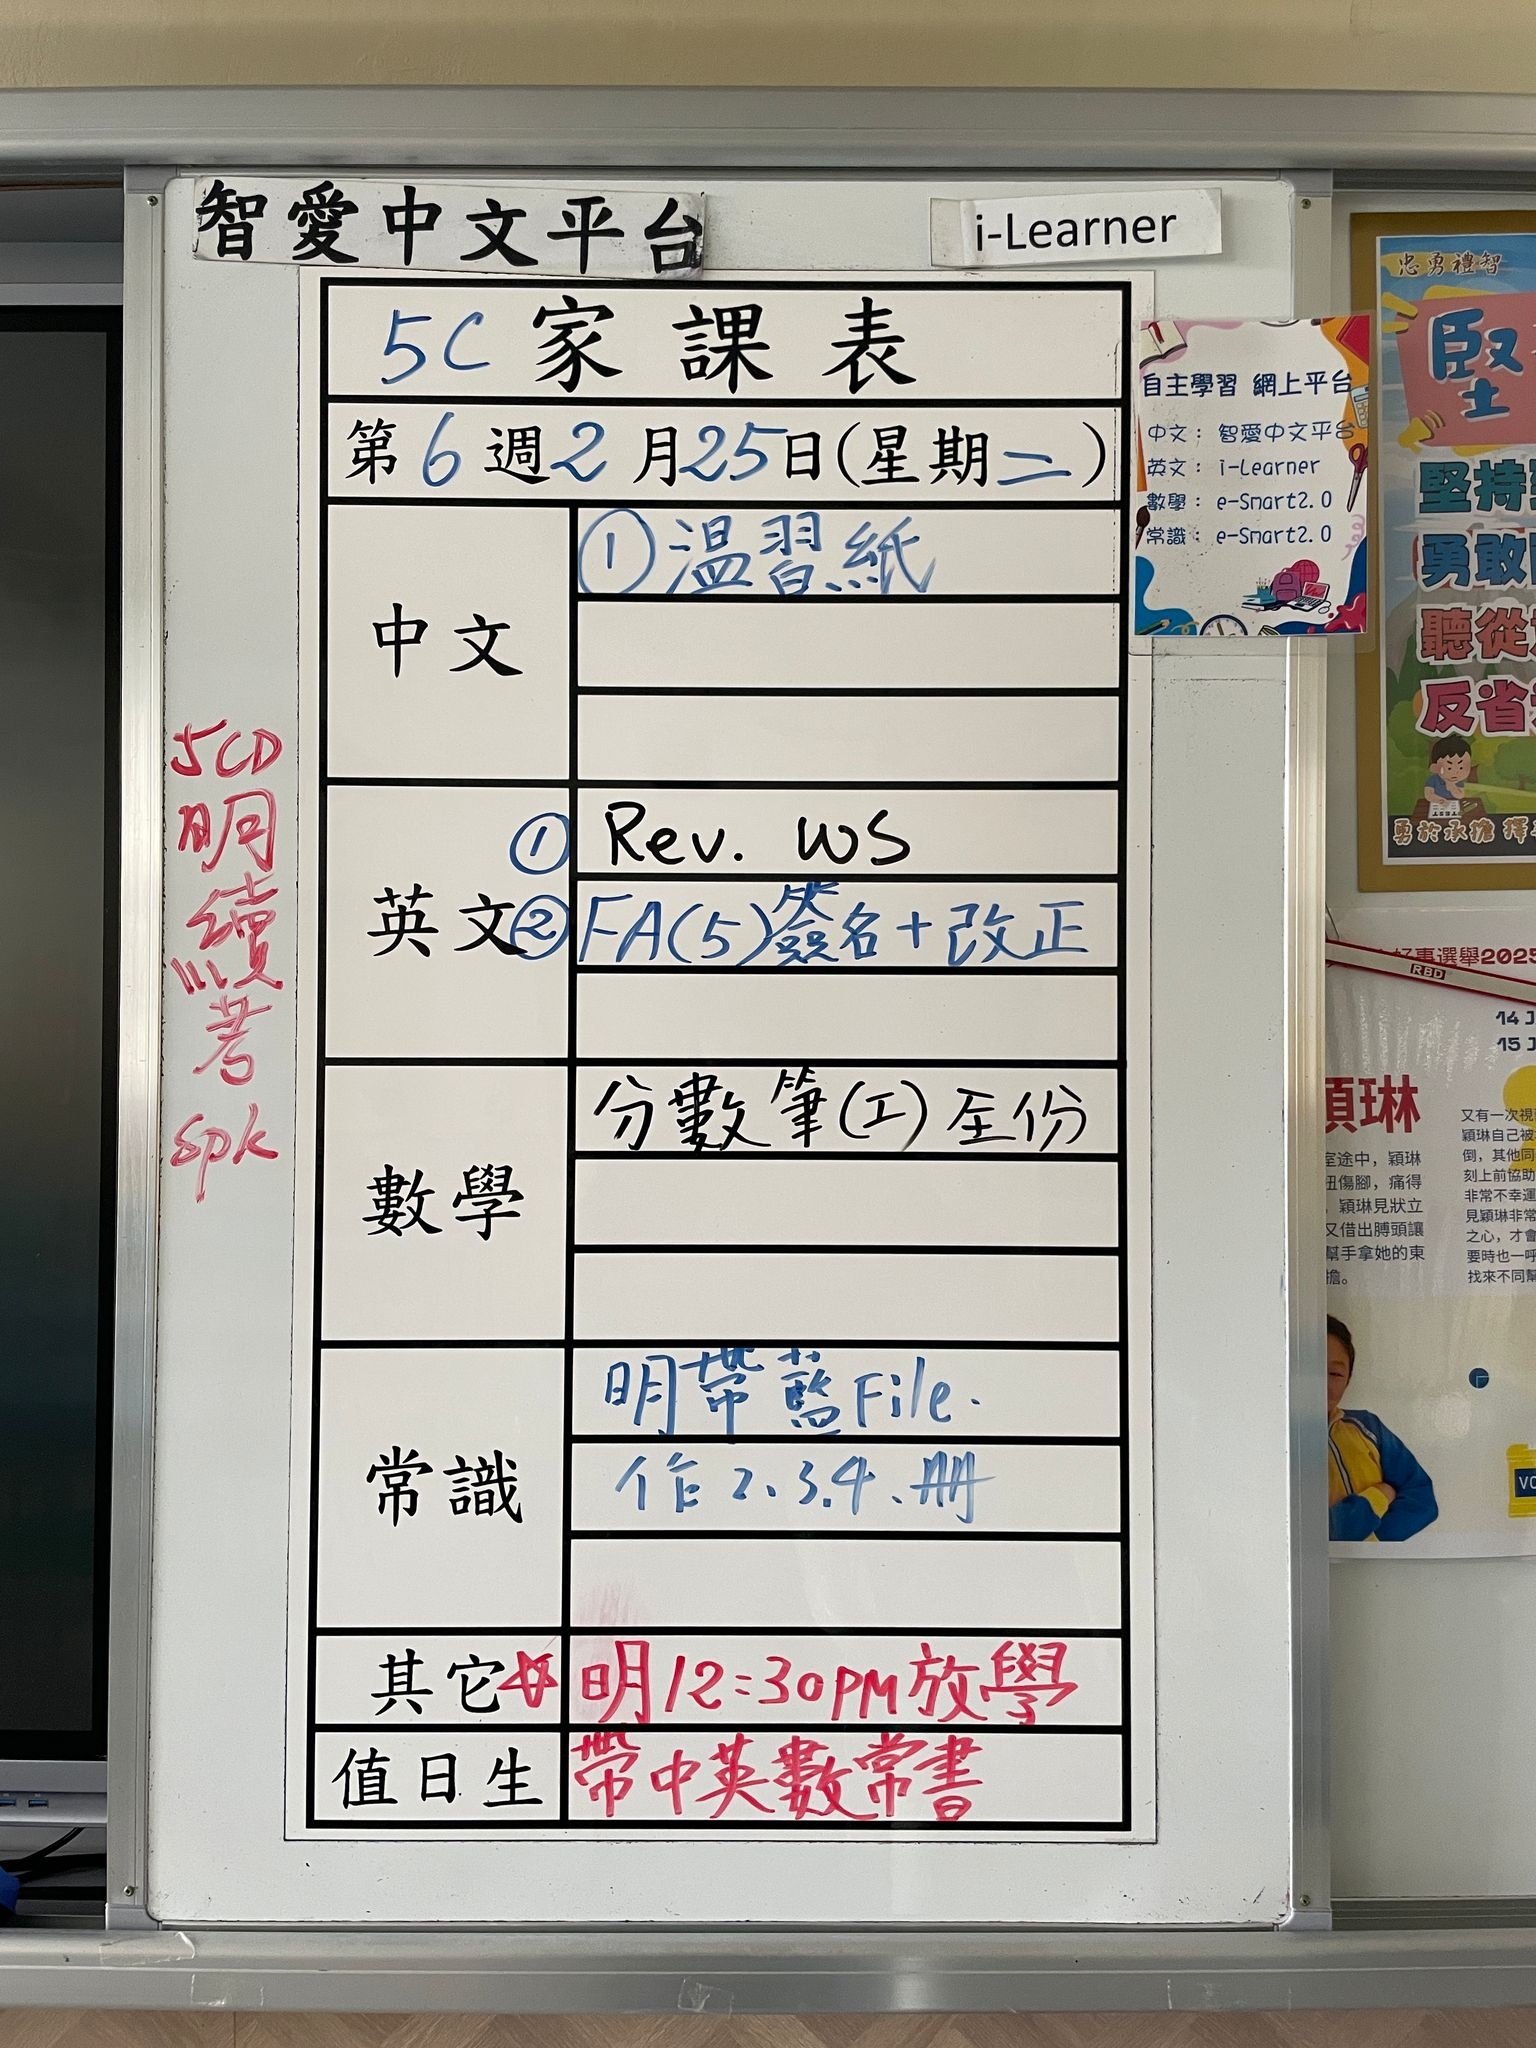 智愛中文平台
i-Learner
5C 家課表
第6週2月25日(星期二)
中文
① 温習紙
英文
① Rev. WS
② FA(5)簽名+改正
數學
分數筆(工)全份
常識
明帶藍File.
作2.3.4.冊
其它
明12:30PM放學
值日生
帶中英數常書
5CD
明
續
考
Spk
自主學習 網上平台
中文： 智愛中文平台
英文： i-Learner
數學： e-Smart2.0
常識： e-Smart2.0
忠勇禮智
堅
堅持
勇敢
聽從
反省
勇於承擔 擇
好事選舉2025
RBD
14 J
15 J
穎琳
室途中，穎琳
扭傷腳，痛得
，穎琳見狀立
又借出膊頭讓
幫手拿她的東
擔。
又有一次視
穎琳自己被
倒，其他同
刻上前協助
非常不幸運
見穎琳非常
之心，才會
要時也一呼
找來不同幫
VO